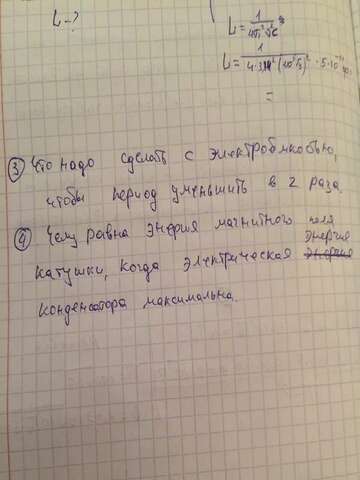 L-?
L=
=
③ Что надо сделать с электроёмкостью,
чтобы период уменьшить в 2 раза.
④ Чему равна энергия магнитного поля
катушки, когда электрическая энергия
конденсатора максимальна.